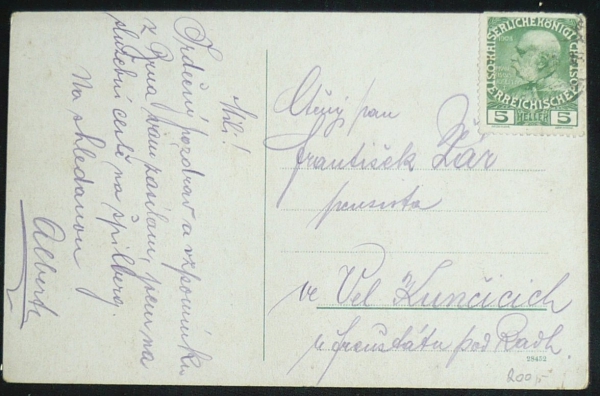 Milí!
Srdečný pozdrav a vzpomínku
z Brna Vám zasílám, jsem na
služební cestě na Špilberg.
Na shledanou
Albert
Ctěný pan
František Žár
pensista
ve Vel Kunčicích
u Frenštátu pod Radh.
KAISERLICHE KÖNIGLICHE
ÖSTERREICHISCHE
5 HELLER 5
29452
200,-